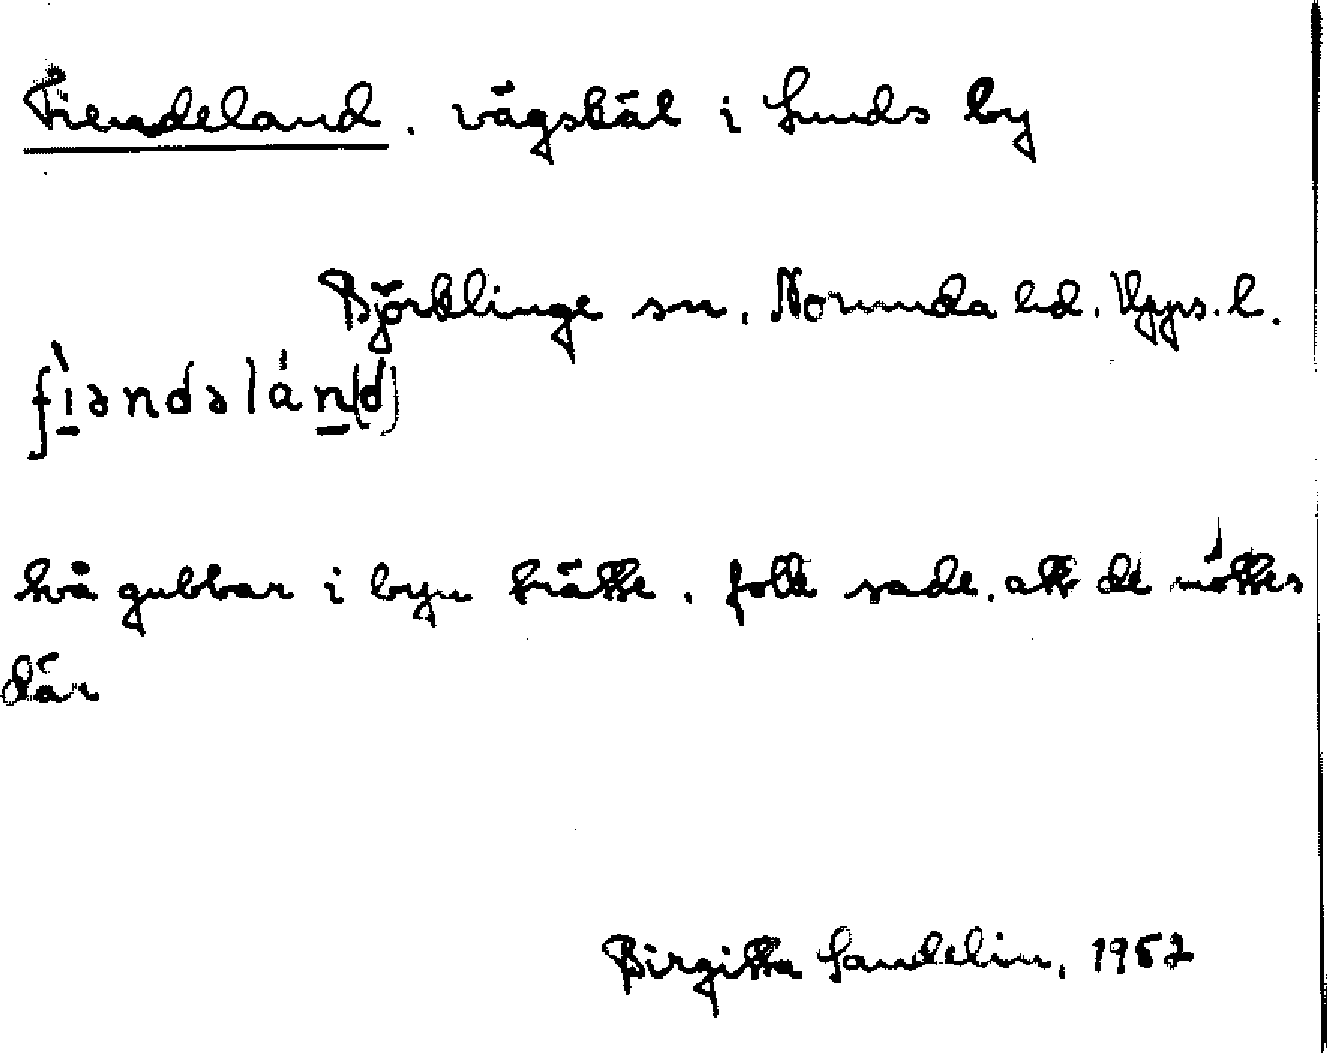 Fiendeland, vägskäl i Lunds by
Björklinge sn, Norunda hd. Upps. l.
fìəndəlán(d)
två gubbar i byn trätte, folk sade, att de möttes
där
Birgitta Sandelin, 1952